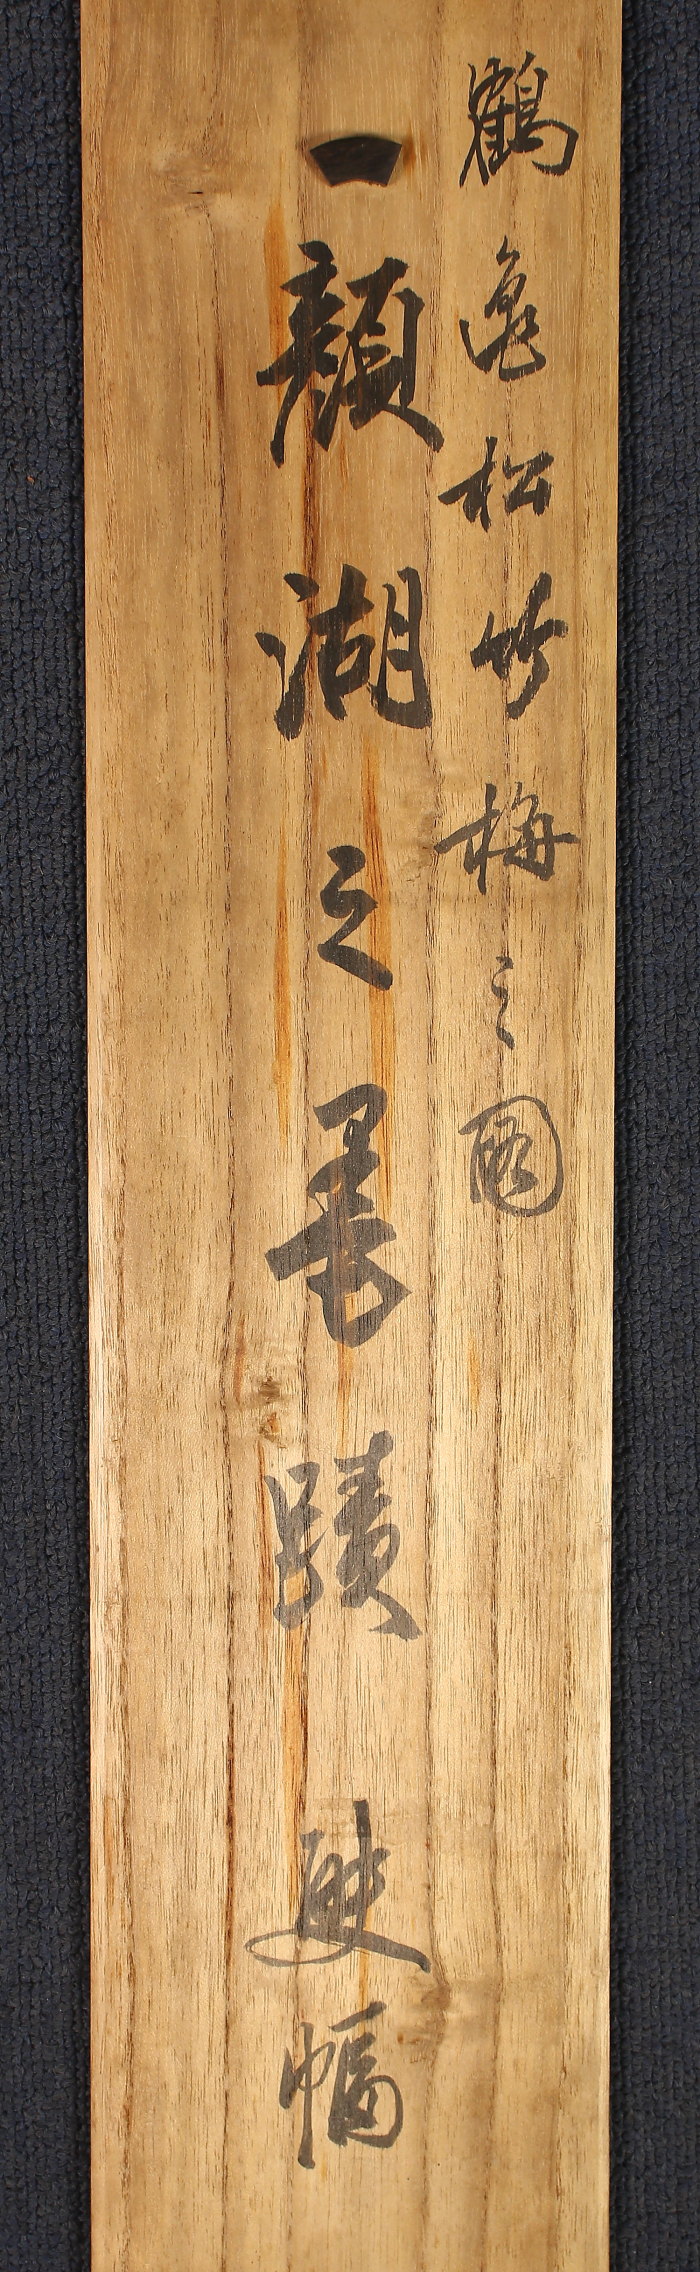 鶴亀松竹梅之圖
顔湖之墨蹟 幅